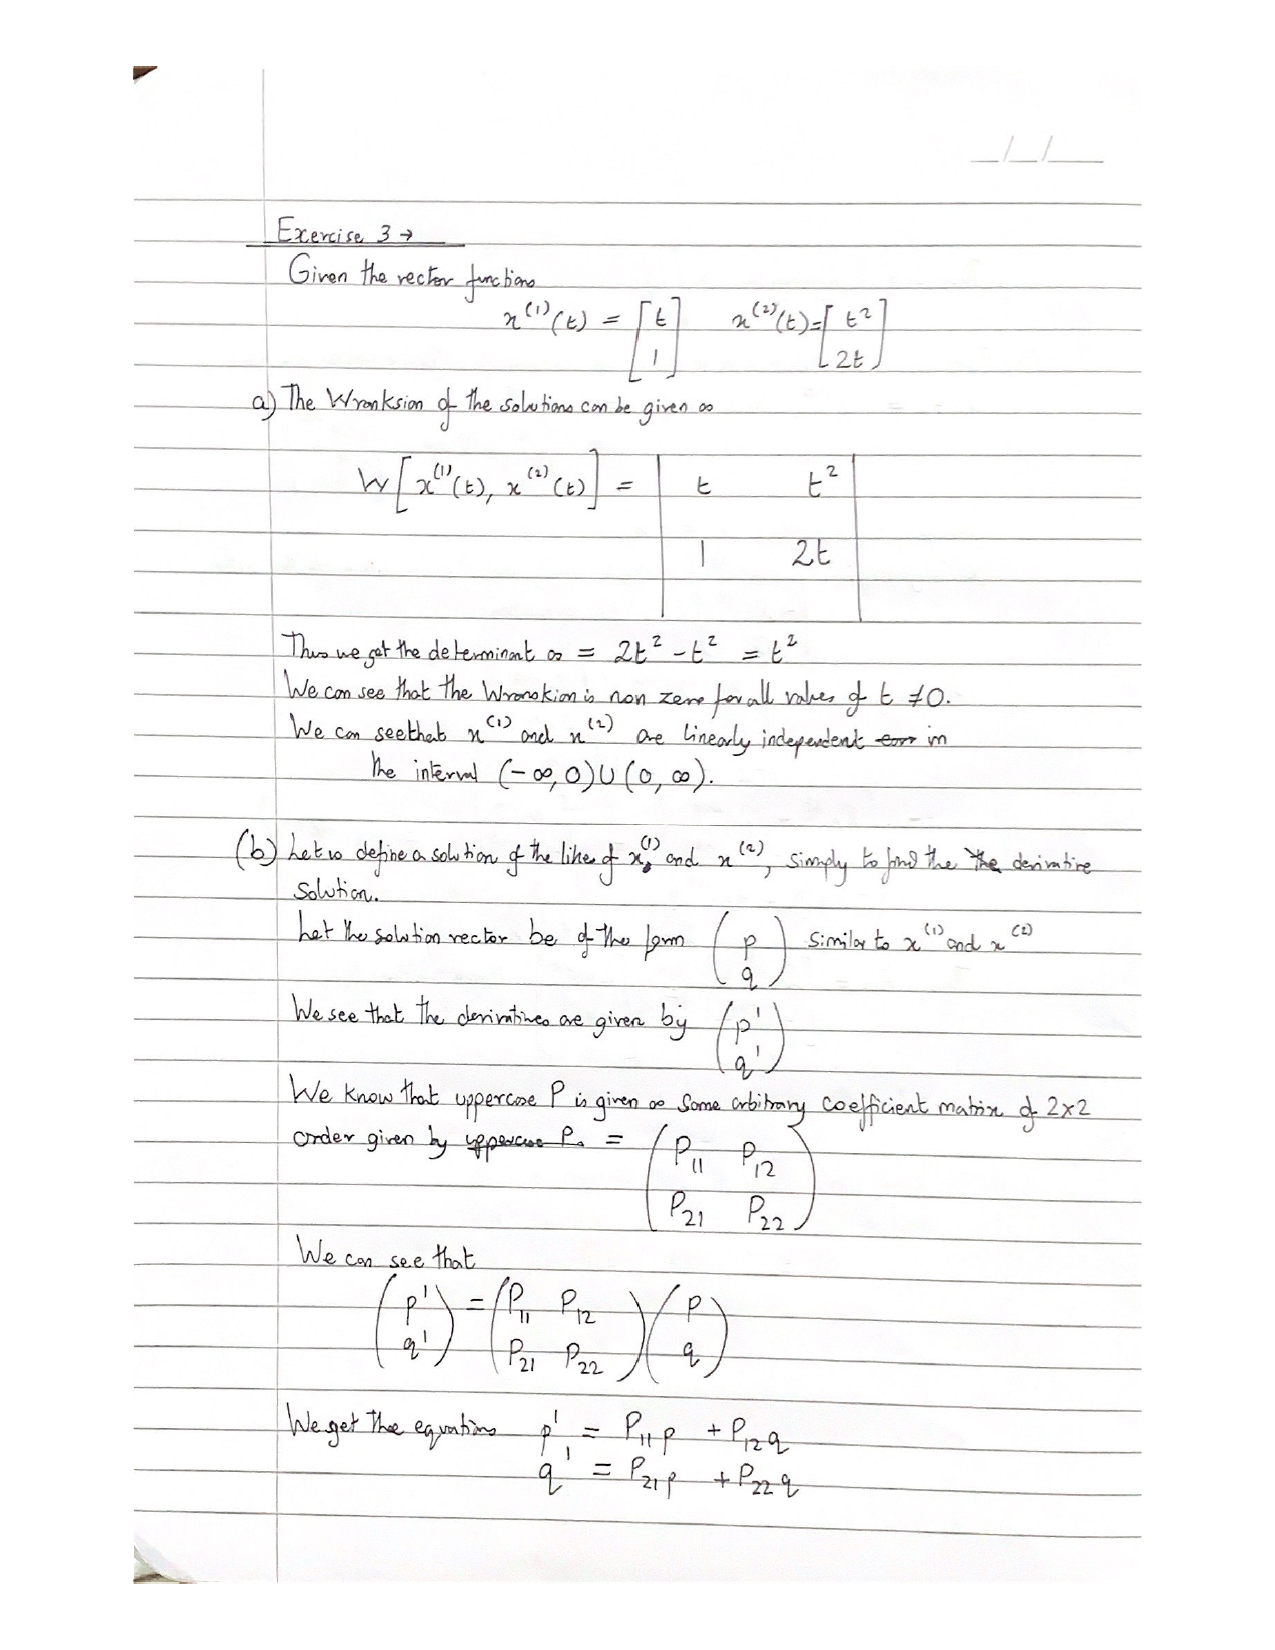 __/__/____
Exercise 3 →
Given the vector functions
x^(1)(t) = [t 1] x^(2)(t) = [t^2 2t]
a) The Wronksian of the solutions can be given as
W[x^(1)(t), x^(2)(t)] = | t t^2 |
| 1 2t |
Thus we get the determinant as = 2t^2 - t^2 = t^2
We can see that the Wronskian is non zero for all values of t ≠ 0.
We can see that x^(1) and x^(2) are linearly independent in
the interval (-∞, 0) U (0, ∞).
(b) Let us define a solution of the likes of x^(1) and x^(2), simply to find the the derivative
solution.
Let the solution vector be of the form (p q) similar to x^(1) and x^(2)
We see that the derivatives are given by (p' q')
We know that uppercase P is given as some arbitrary coefficient matrix of 2x2
order given by uppercase P. = (P11 P12
P21 P22)
We can see that
(p' q') = (P11 P12 P21 P22)(p q)
We get the equations p' = P11 p + P12 q
q' = P21 p + P22 q